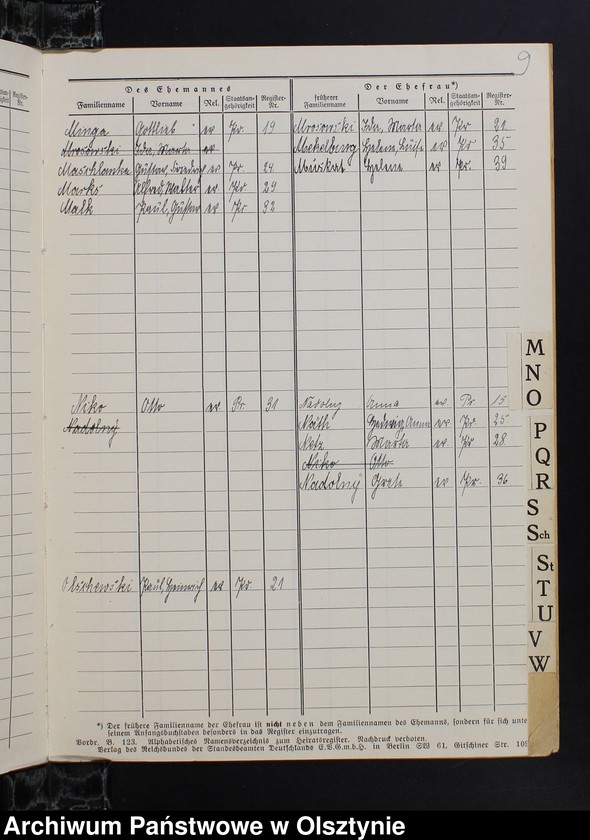 9
Des Ehemannes Der Ehefrau*)
Familienname Vorname Rel. Staatsan-gehörigkeit Register-Nr. früherer Familienname Vorname Rel. Staatsan-gehörigkeit Register-Nr.
Minga Gottlieb ev Pr 19 Mrosowski Ida, Marta ev Pr 21
Mrosowski Ida, Marta ev Mekelburg Helene, Luise ev Pr 35
Maschlanka Gustav, Friedrich ev Pr. 24 Helene ev Pr. 39
Marks Alfred, Walter ev Pr 29
Malk Paul, Gustav ev Pr 32
Niko Otto ev Pr. 31 Nadolny Anna ev Pr 15
Nadolny Näth Hedwig, Anna ev Pr 25
Netz Marta ev Pr 28
Niko Otto
Nadolny Grete ev Pr. 36
Olschewski Paul, Heinrich ev Pr 21
M
N
O
P
Q
R
S
Sch
St
T
U
V
W
*) Der frühere Familienname der Ehefrau ist nicht neben dem Familiennamen des Ehemanns, sondern für sich unte
seinem Anfangsbuchstaben besonders in das Register einzutragen.
Vordr. B. 123. Alphabetisches Namensverzeichnis zum Heiratsregister. Nachdruck verboten.
Verlag des Reichsbundes der Standesbeamten Deutschlands E.V.G.m.b.H. in Berlin SW 61, Gitschiner Str. 109
Archiwum Państwowe w Olsztynie